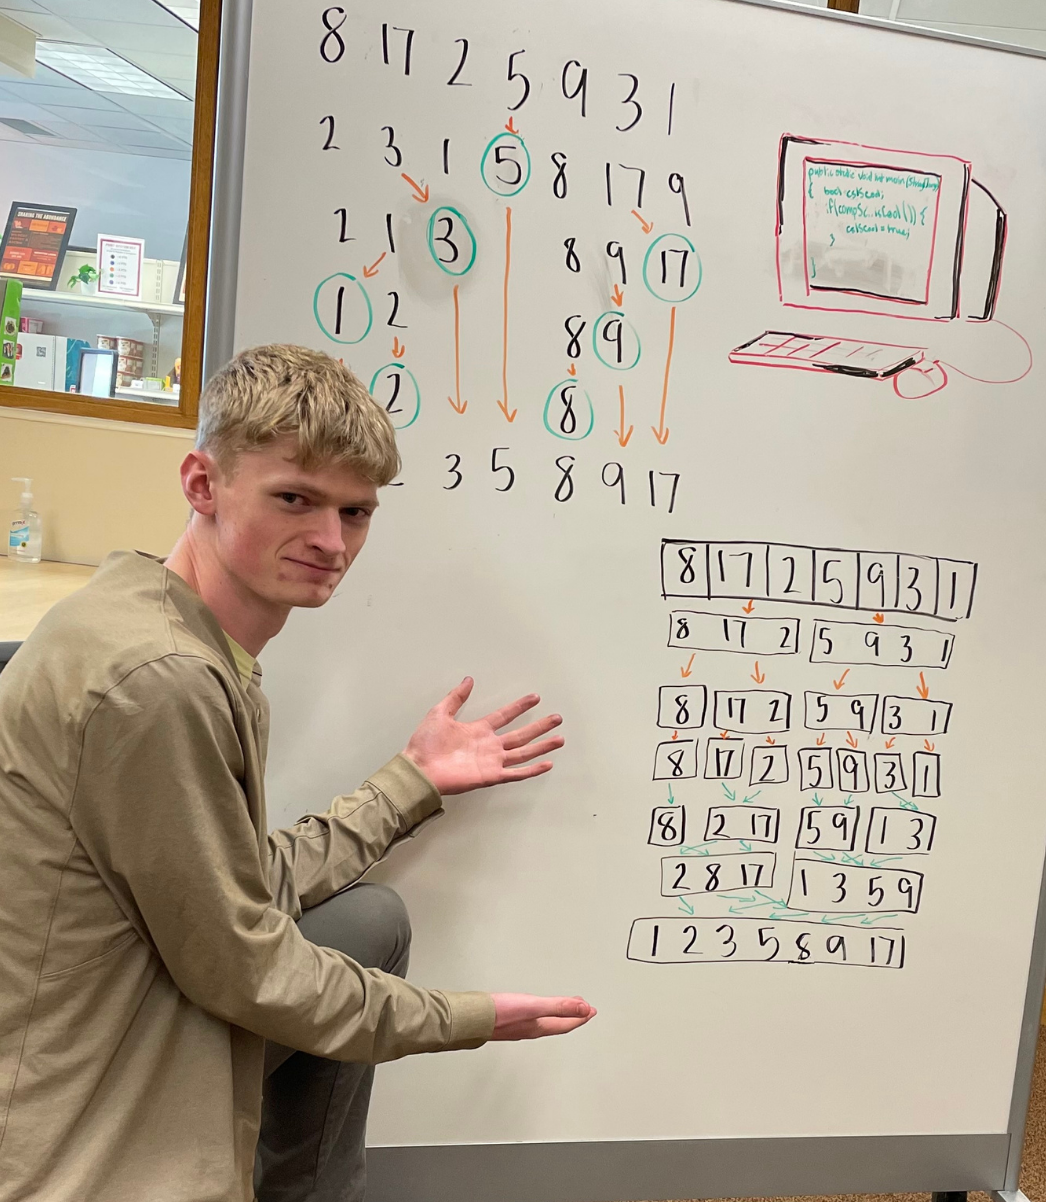 8 17 2 5 9 3 1
2 3 1 5 8 17 9
2 1 3 8 9 17
1 2 8 9
2 8
3 5 8 9 17
public static void
{
if(compSc..isCool()) {
= true;
}
}
8 17 2 5 9 3 1
8 17 2 5 9 3 1
8 17 2 5 9 3 1
8 17 2 5 9 3 1
8 2 17 5 9 1 3
2 8 17 1 3 5 9
1 2 3 5 8 9 17
SHARING THE ABUNDANCE